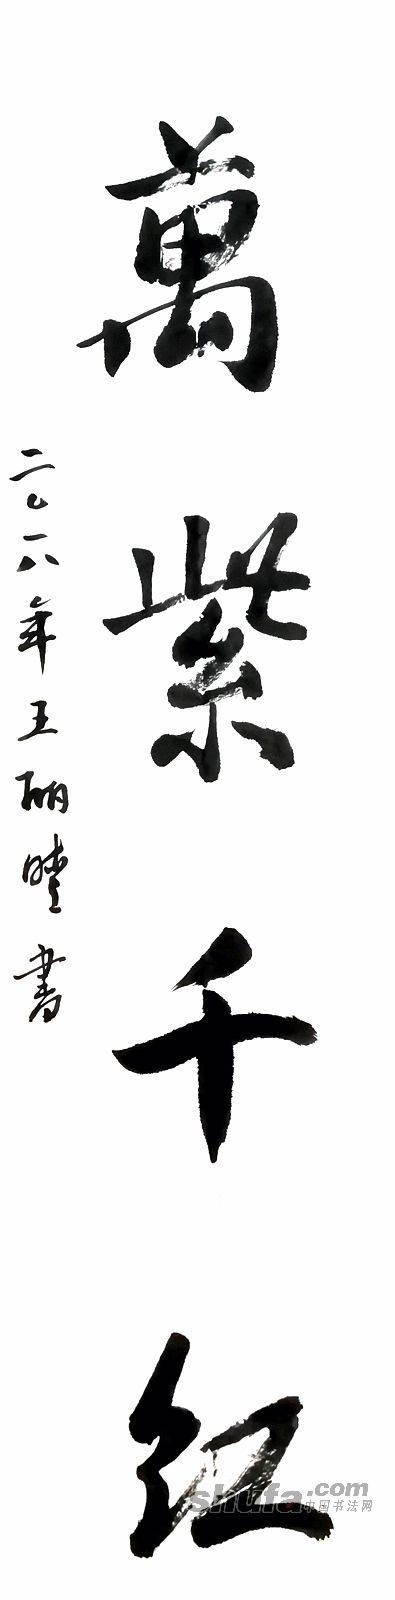 萬紫千红
二〇一八年王丽曉書
shufa.com
中国书法网